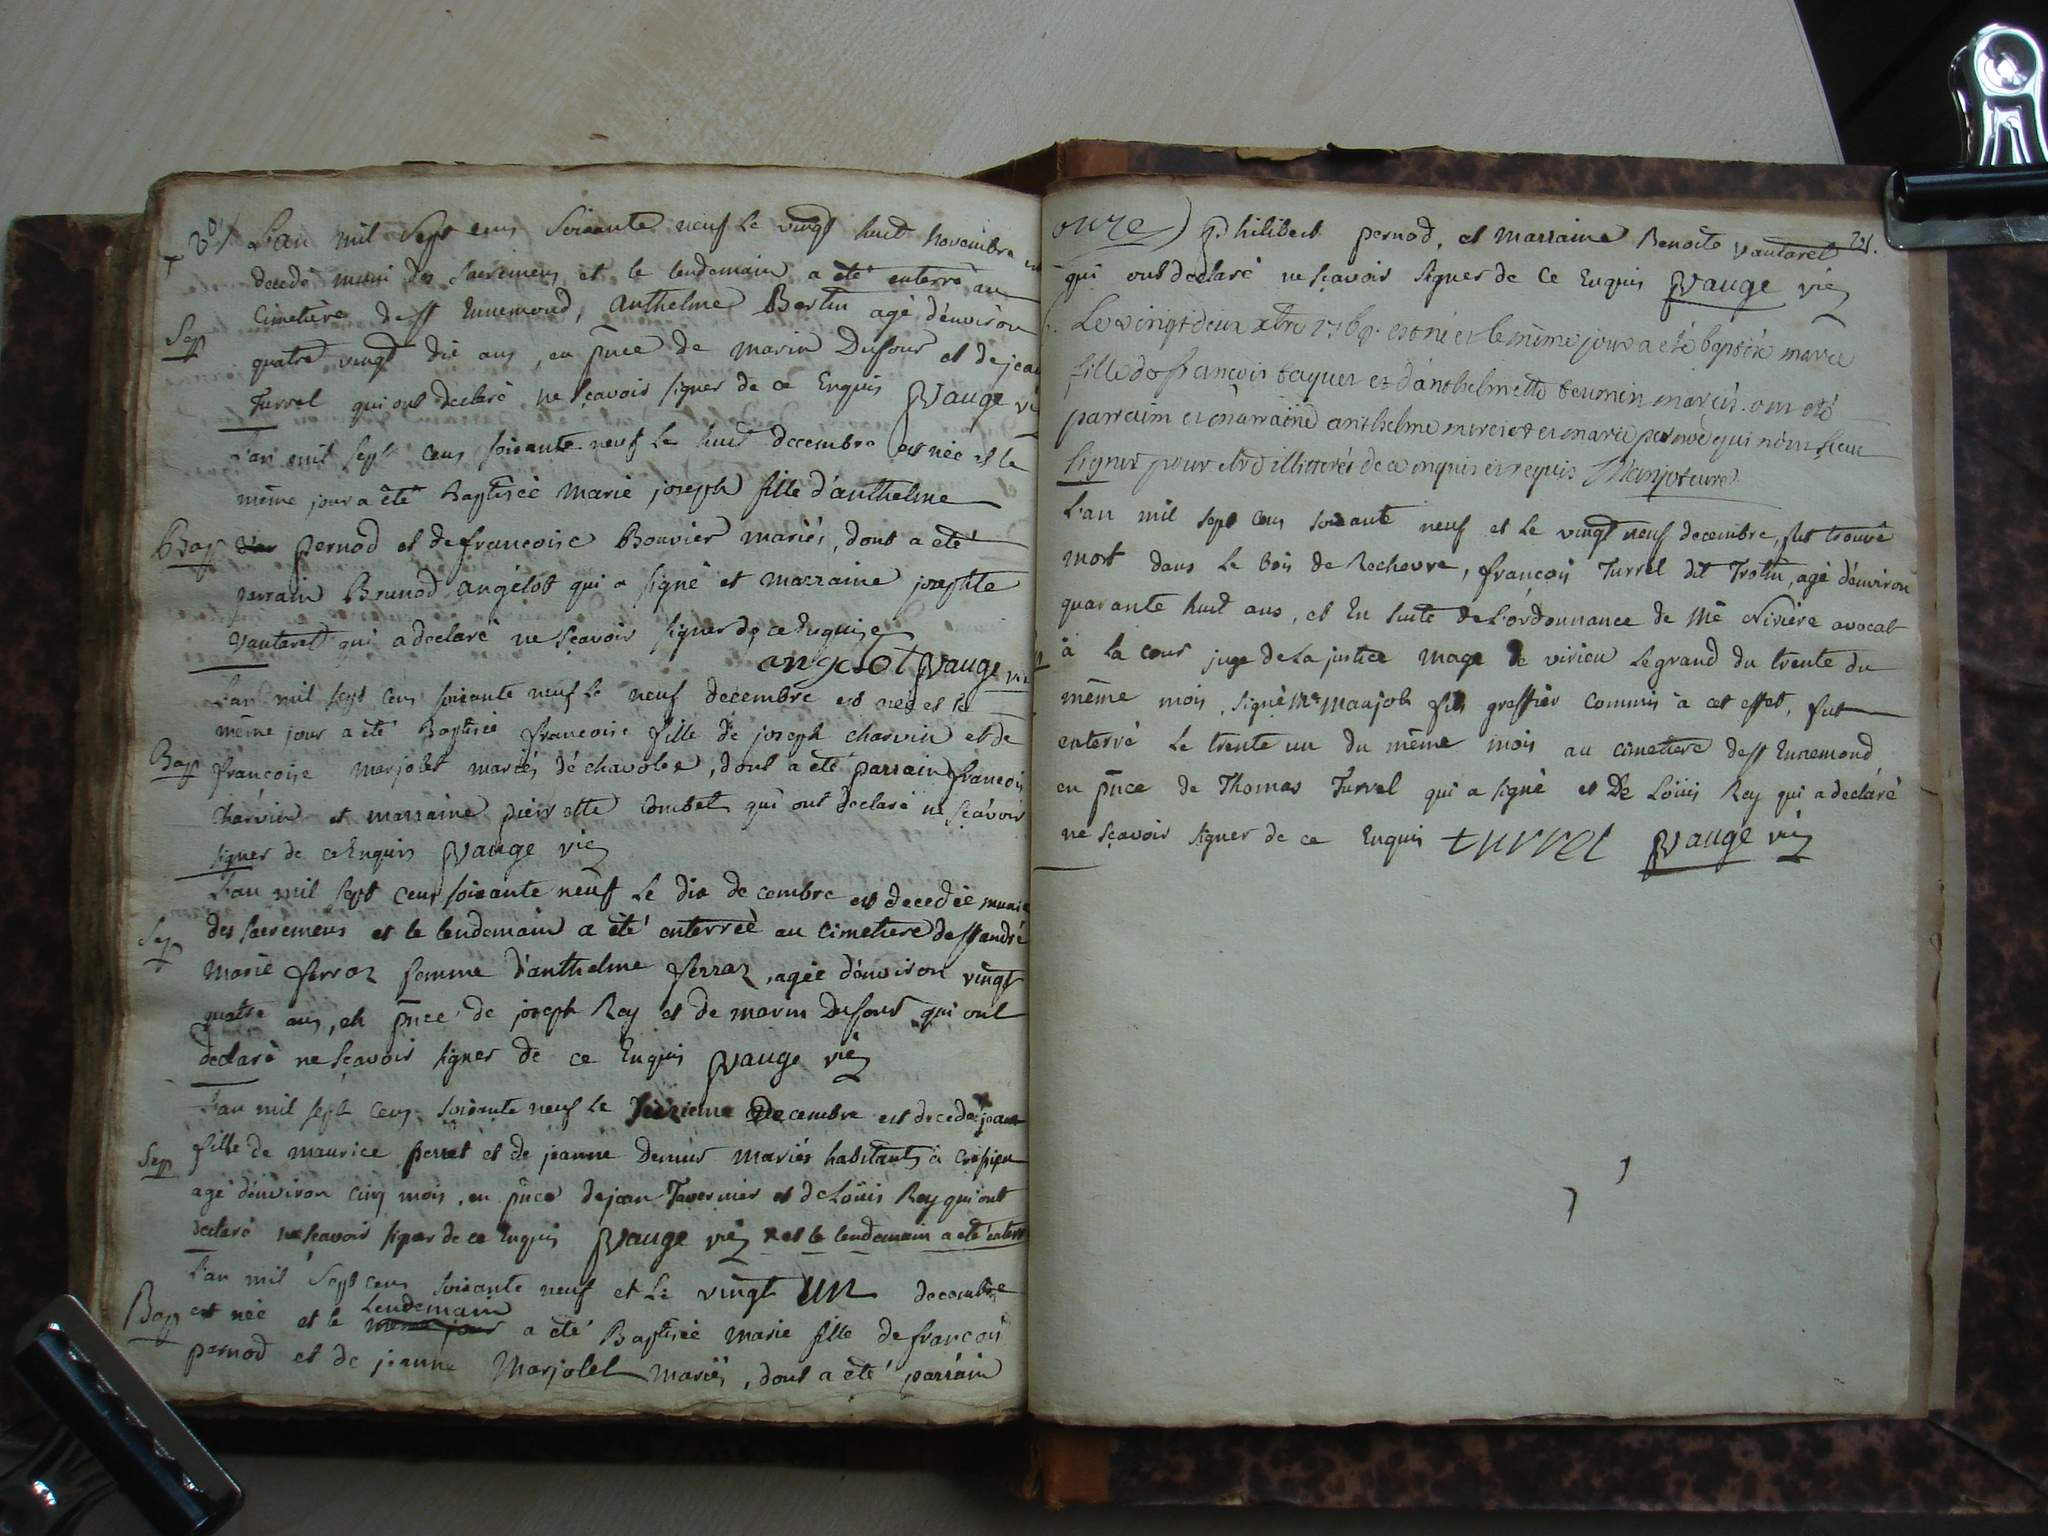 L'an mil sept cens soixante neuf Le vingt huit novembre est
decedé muni des sacremens, et le lendemain a été enterré au
Cimetière de St Ennemond, anthelme Bertin agé d'environ
Sep
quatre vingt dix ans, en pnce de marin Dufour et de jean
Turrel qui ont declaré ne sçavoir signer de ce Enquis Vauge vic
L'an mil sept cens soixante neuf Le huit decembre est née et le
même jour a été Baptisée marie joseph fille d'anthelme
Bap pernod et de francoise Bouvier mariés, dont a été
parrain Brunod angelot qui a signé et marraine josephte
Vautaret qui a declaré ne sçavoir signer de ce enquise
angelot Vauge vic
L'an mil sept cens soixante neuf Le neuf decembre est née et le
même jour a été Baptisée francoise fille de joseph charvin et de
Bap francoise marjolet mariés de chavoley, dont a été parrain francois
charvin et marraine pierrette Combet qui ont declaré ne sçavoir
signer de ce Enquis Vauge vic
L'an mil sept cens soixante neuf Le dix decembre est decedée munie
des sacremens et le lendemain a été enterrée au Cimetiere de St andré
Sep
Marie ferraz femme d'anthelme ferraz, agée d'environ vingt
quatre ans, en pnce de joseph Rey et de marin Dufour qui ont
declaré ne sçavoir signer de ce Enquis Vauge vic
L'an mil sept cens soixante neuf Le seizieme Decembre est decedé jeanne
Sep fille de maurice perret et de jeanne mariés habitants à
agé d'environ cinq mois, en pnce de jean Tavernier et de Loüis Rey qui ont
declaré ne sçavoir signer de ce Enquis Vauge vic x et le lendemain a été enterré
L'an mil sept cens soixante neuf et Le vingt UN decembre
Bap est née et le même jour lendemain a été Baptisée marie fille de francois
pernod et de jeanne Marjolet mariés, dont a été parrain
onze) philibert pernod, et marraine Benoite Vautaret
qui ont declaré ne sçavoir signer de Ce Enquis Vauge vic
Le vingt deux xbre 1769 est né et le même jour a eté baptisée marie
fille de françois et d'anthelmette mariés. ont eté
parraim et marraine anthelme merciet et marie pernod qui n'ont sceu
signer pour etre illitterés de ce enquis et requis Manjot curé
L'an mil sept cens soixante neuf et Le vingt neuf decembre, fut trouvé
mort dans Le bois de Rochevre, françois Turrel dit Trotin, agé d'environ
quarante huit ans, et En suite de L'ordonnance de Me Niviere avocat
à La cour juge de La justice mage de virieu Legrand du trente du
même mois, signé Me manjot fils greffier commis à cet effet, fut
enterré Le trente un du même mois au cimetiere de St Ennemond
en pnce de Thomas Turrel qui a signé et De Loüis Rey qui a declaré
ne sçavoir signer de ce Enquis turrel Vauge vic